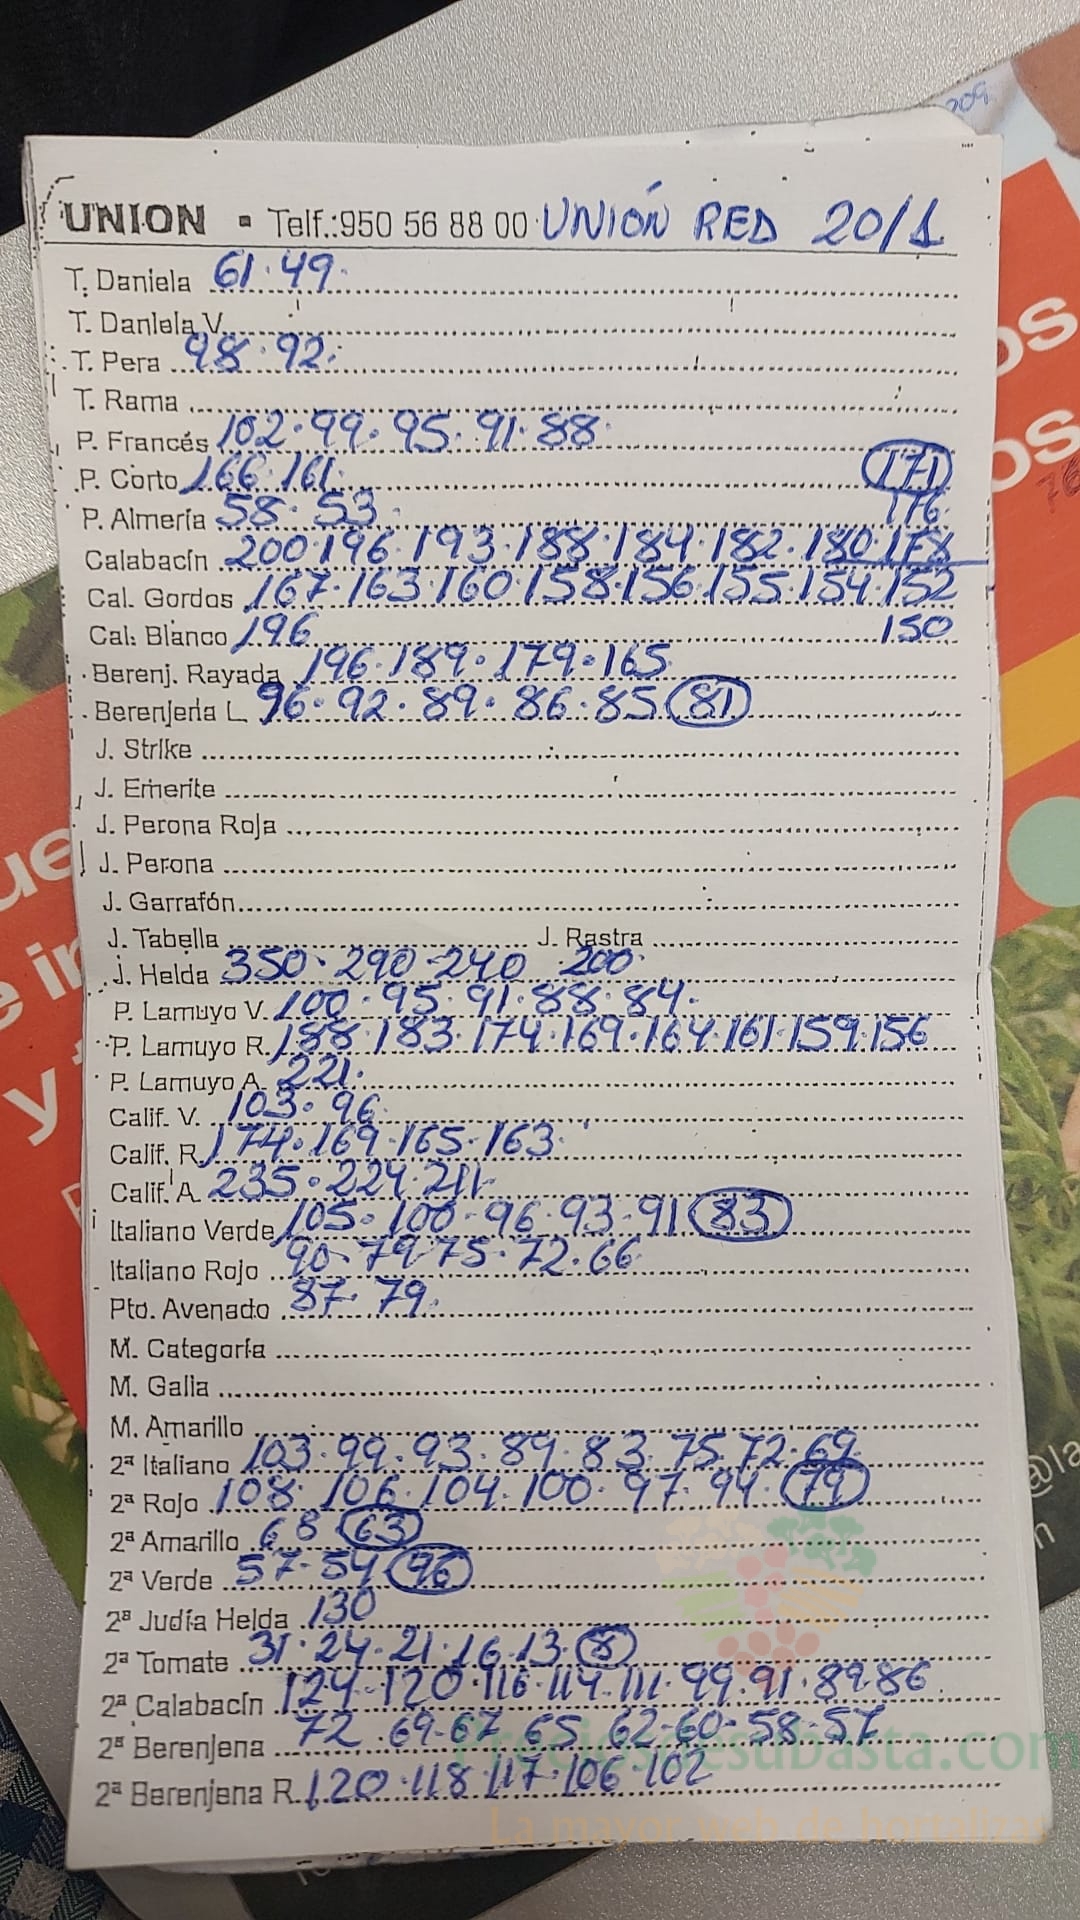 209
UNION - Telf.:950 56 88 00 UNIÓN RED 20/1
T. Daniela 61.49.
T. Daniela V.
T. Pera 98.92.
T. Rama
P. Francés 102.99.95.91.88
P. Corto 166.161. 171
P. Almería 58.53. 176
Calabacín 200.196.193.188.184.182.180.178
Cal. Gordos 167.163.160.158.156.155.154.152
Cal. Blanco 196 150
Berenj. Rayada 196.189.179.165
Berenjena L. 96.92.89.86.85 81
J. Strike
J. Emerite
J. Perona Roja
J. Perona
J. Garrafón
J. Tabella J. Rastra
J. Helda 350.290-240 200
P. Lamuyo V. 100.95.91.88.84.
P. Lamuyo R. 188.183.174.169.164.161.159.156
P. Lamuyo A. 221.
Calif. V. 103.96
Calif. R. 174.169.165.163
Calif. A. 235.224.211.
Italiano Verde 105.100-96.93-91 83
Italiano Rojo 90.79 75.72.66
Pto. Avenado 87.79
M. Categoría
M. Galia
M. Amarillo
2ª Italiano 103.99.93.89.83.75.72.69
2ª Rojo 108.106.104.100.97.94. 79
2ª Amarillo 68 63
2ª Verde 57-54 96
2ª Judía Helda 130
2ª Tomate 31.24-21.16.13. 8
2ª Calabacín 124-120.116.114.111.99.91.89.86
2ª Berenjena 72.69-67 65 62-60-58-57
2ª Berenjena R. 120.118.117.106 102
Preciosdesubasta.com
La mayor web de hortalizas